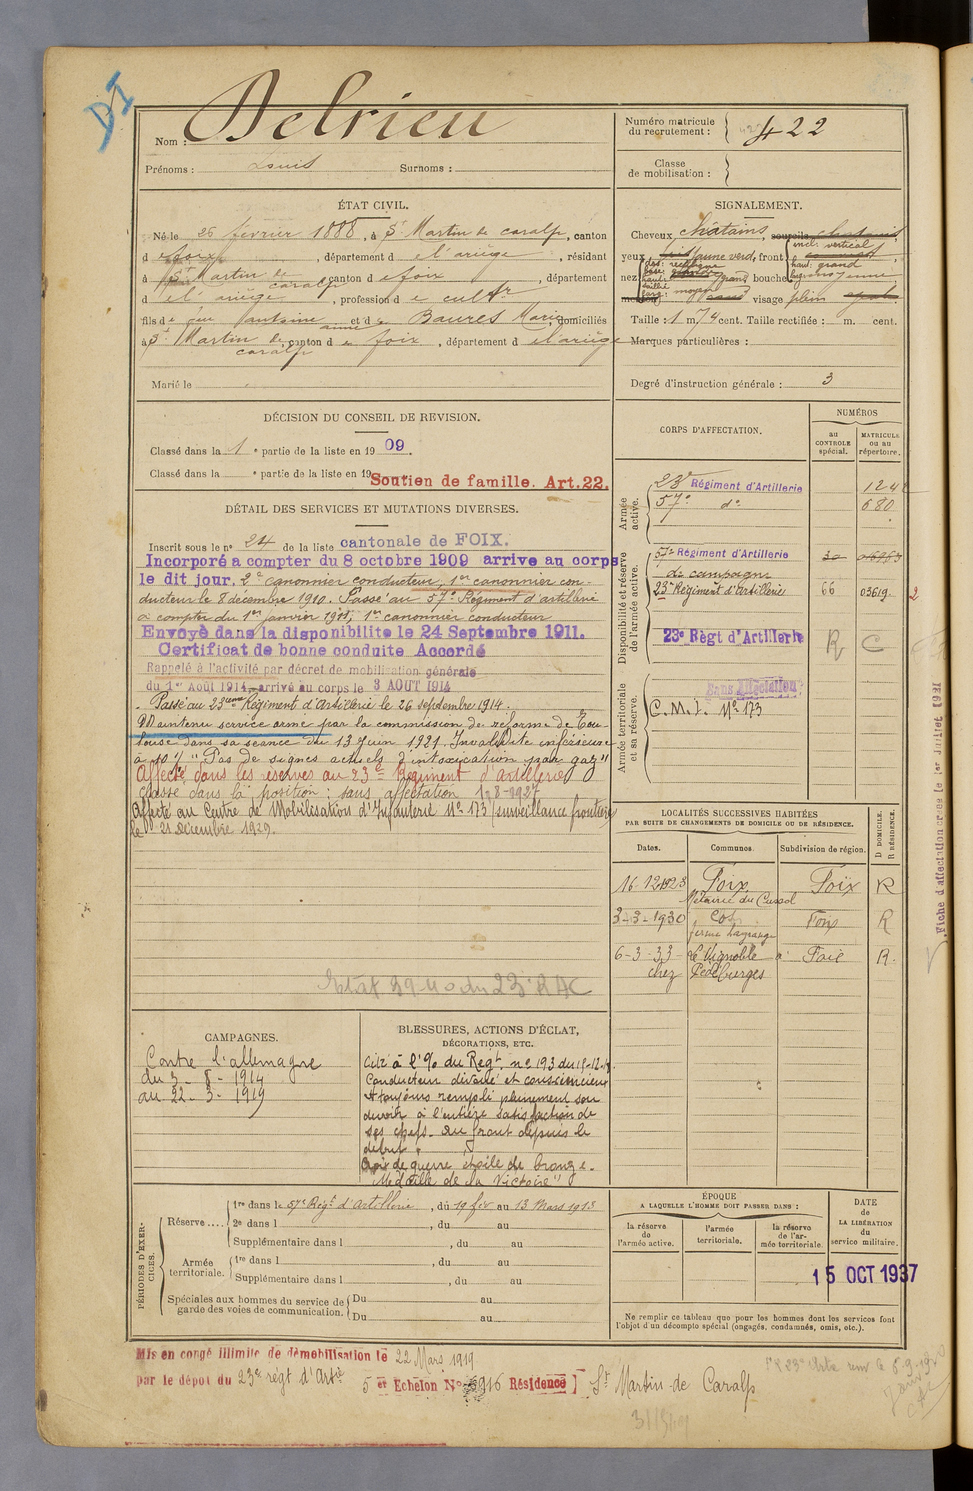 DI
Nom : Delrieu
Prénoms : Louis Surnoms :
Numéro matricule du recrutement : 422
Classe de mobilisation :
ÉTAT CIVIL.
Né le 26 février 1888, à St Martin de caralp, canton
d , département d e l'ariège, résidant
à St Martin de caralp canton d e foix, département
d e l'ariège, profession d e cultr
fils d e feu antoine et d e Baures Marie anne, domiciliés
à St Martin de caralp, canton d e foix, département d e l'ariège
Marié le
SIGNALEMENT.
Cheveux châtains, sourcils
yeux jaune verd, front incl: vertical
haut: grand
nez dos: rectiligne
base:
haut: grand bouche
saillie
larg: moyen visage plein
Taille : 1 m 74 cent. Taille rectifiée : m. cent.
Marques particulières :
Degré d'instruction générale : 3
DÉCISION DU CONSEIL DE REVISION.
Classé dans la 1e partie de la liste en 1909.
Classé dans la e partie de la liste en 19
Soutien de famille. Art.22.
DÉTAIL DES SERVICES ET MUTATIONS DIVERSES.
Inscrit sous le no 24 de la liste cantonale de FOIX.
Incorporé a compter du 8 octobre 1909 arrive au corps
le dit jour, 2e canonnier conducteur, 1er canonnier con-
ducteur le 8 décembre 1910. Passé au 57e Régiment d'artillerie
à compter du 1er janvier 1911, 1er canonnier conducteur
Envoyé dans la disponibilite le 24 Septembre 1911.
Certificat de bonne conduite Accordé
Rappelé à l'activité par décret de mobilisation générale
du 1er Août 1914, arrivé au corps le 3 AOUT 1914
Passé au 23eme Régiment d'Artillerie le 26 septembre 1914.
Maintenu service armé par la commission de réforme de Tou-
louse dans sa séance du 13 Juin 1921. Invalidité inférieure
à 10% "Pas de signes actuels d'intoxication par gaz"
Affecté dans les réserves au 23e Régiment d'artillerie
classé dans la position : sans affectation 1-8-1927
Affecté au Centre de Mobilisation d'Infanterie No 173 (surveillance frontière)
le 21 Décembre 1929.
Etat 39-40 du 23e RAC
CORPS D'AFFECTATION.
NUMÉROS
au CONTROLE spécial.
MATRICULE ou au répertoire.
Armée active.
23e Régiment d'Artillerie 1242
57e do 680
Disponibilité et réserve de l'armée active.
57e Régiment d'Artillerie 30
de campagne
23e Régiment d'Artillerie 66 03619 2
23e Règt d'Artillerie R C
Armée territoriale et sa réserve.
Sans Affectation
C.M.I. No 173
Fiche d'affectation créée le 1er Juillet 1931
LOCALITÉS SUCCESSIVES HABITÉES
PAR SUITE DE CHANGEMENTS DE DOMICILE OU DE RÉSIDENCE.
Dates. Communes. Subdivision de région. D DOMICILE. R RÉSIDENCE.
16-12-1923 Foix Foix R
Métairie du Cussol
3-3-1930 Cos Foix R
ferme Lagrange
6-3-33 Le Vignoble à Foix R.
chez
CAMPAGNES.
Contre l'allemagne
du 3 - 8 - 1914
au 22 - 3 - 1919
BLESSURES, ACTIONS D'ÉCLAT,
DÉCORATIONS, ETC.
Cité à l'O/ du Régt no 193 du 15-12-18.
Conducteur dévoué et consciencieux
A toujours rempli pleinement son
devoir à l'entière satisfaction de
ses chefs. Au front depuis le
début.
Croix de guerre étoile de bronze.
"Médaille de la Victoire"
PÉRIODES D'EXERCICES.
Réserve .... 1re dans le 57e Régt d'Artillerie, du 19 fév au 13 Mars 1913
2e dans l , du au
Supplémentaire dans l , du au
Armée territoriale. 1re dans l , du au
Supplémentaire dans l , du au
Spéciales aux hommes du service de garde des voies de communication. Du au
Du au
ÉPOQUE
A LAQUELLE L'HOMME DOIT PASSER DANS :
la réserve de l'armée active.
l'armée territoriale.
la réserve de l'armée territoriale.
DATE DE LA LIBÉRATION du service militaire.
15 OCT 1937
Ne remplir ce tableau que pour les hommes dont les services font
l'objet d'un décompte spécial (engagés, condamnés, omis, etc.).
Mis en congé illimité de démobilisation le 22 Mars 1919
par le dépot du 23e régt d'Artie 5 et Echelon No 6916 Résidence St Martin de Caralp